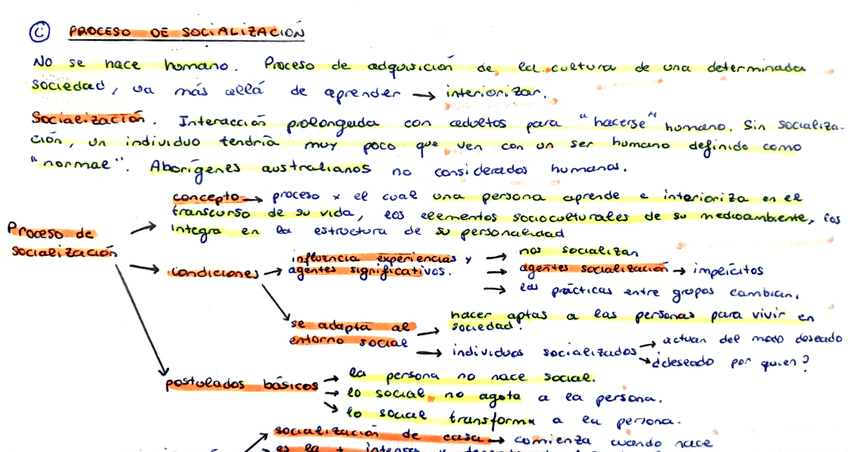 C PROCESO DE SOCIALIZACIÓN
No se nace humano. Proceso de adquisición de la cultura de una determinada
sociedad, va más allá de aprender → interiorizar.
Socialización. Interacción prolongada con adultos para "hacerse" humano. Sin socializa-
ción, un individuo tendría muy poco que ver con un ser humano definido como
"normal". Aborígenes australianos no considerados humanos.
concepto → proceso x el cual una persona aprende e interioriza en el
transcurso de su vida, los elementos socioculturales de su medioambiente, los
integra en la estructura de su personalidad
Proceso de
socialización
condiciones → influencia experiencias y
agentes significativos.
→ nos socializan
→ agentes socialización → implícitos
→ las prácticas entre grupos cambian.
se adapta al
entorno social
→ hacer aptas a las personas para vivir en
sociedad.
→ individuos socializados → actuan del modo deseado
→ ¿deseado por quien?
postulados básicos → la persona no nace social.
→ lo social no agota a la persona.
→ lo social transforma a la persona.
socialización de casa → comienza cuando nace
es la + intensa y